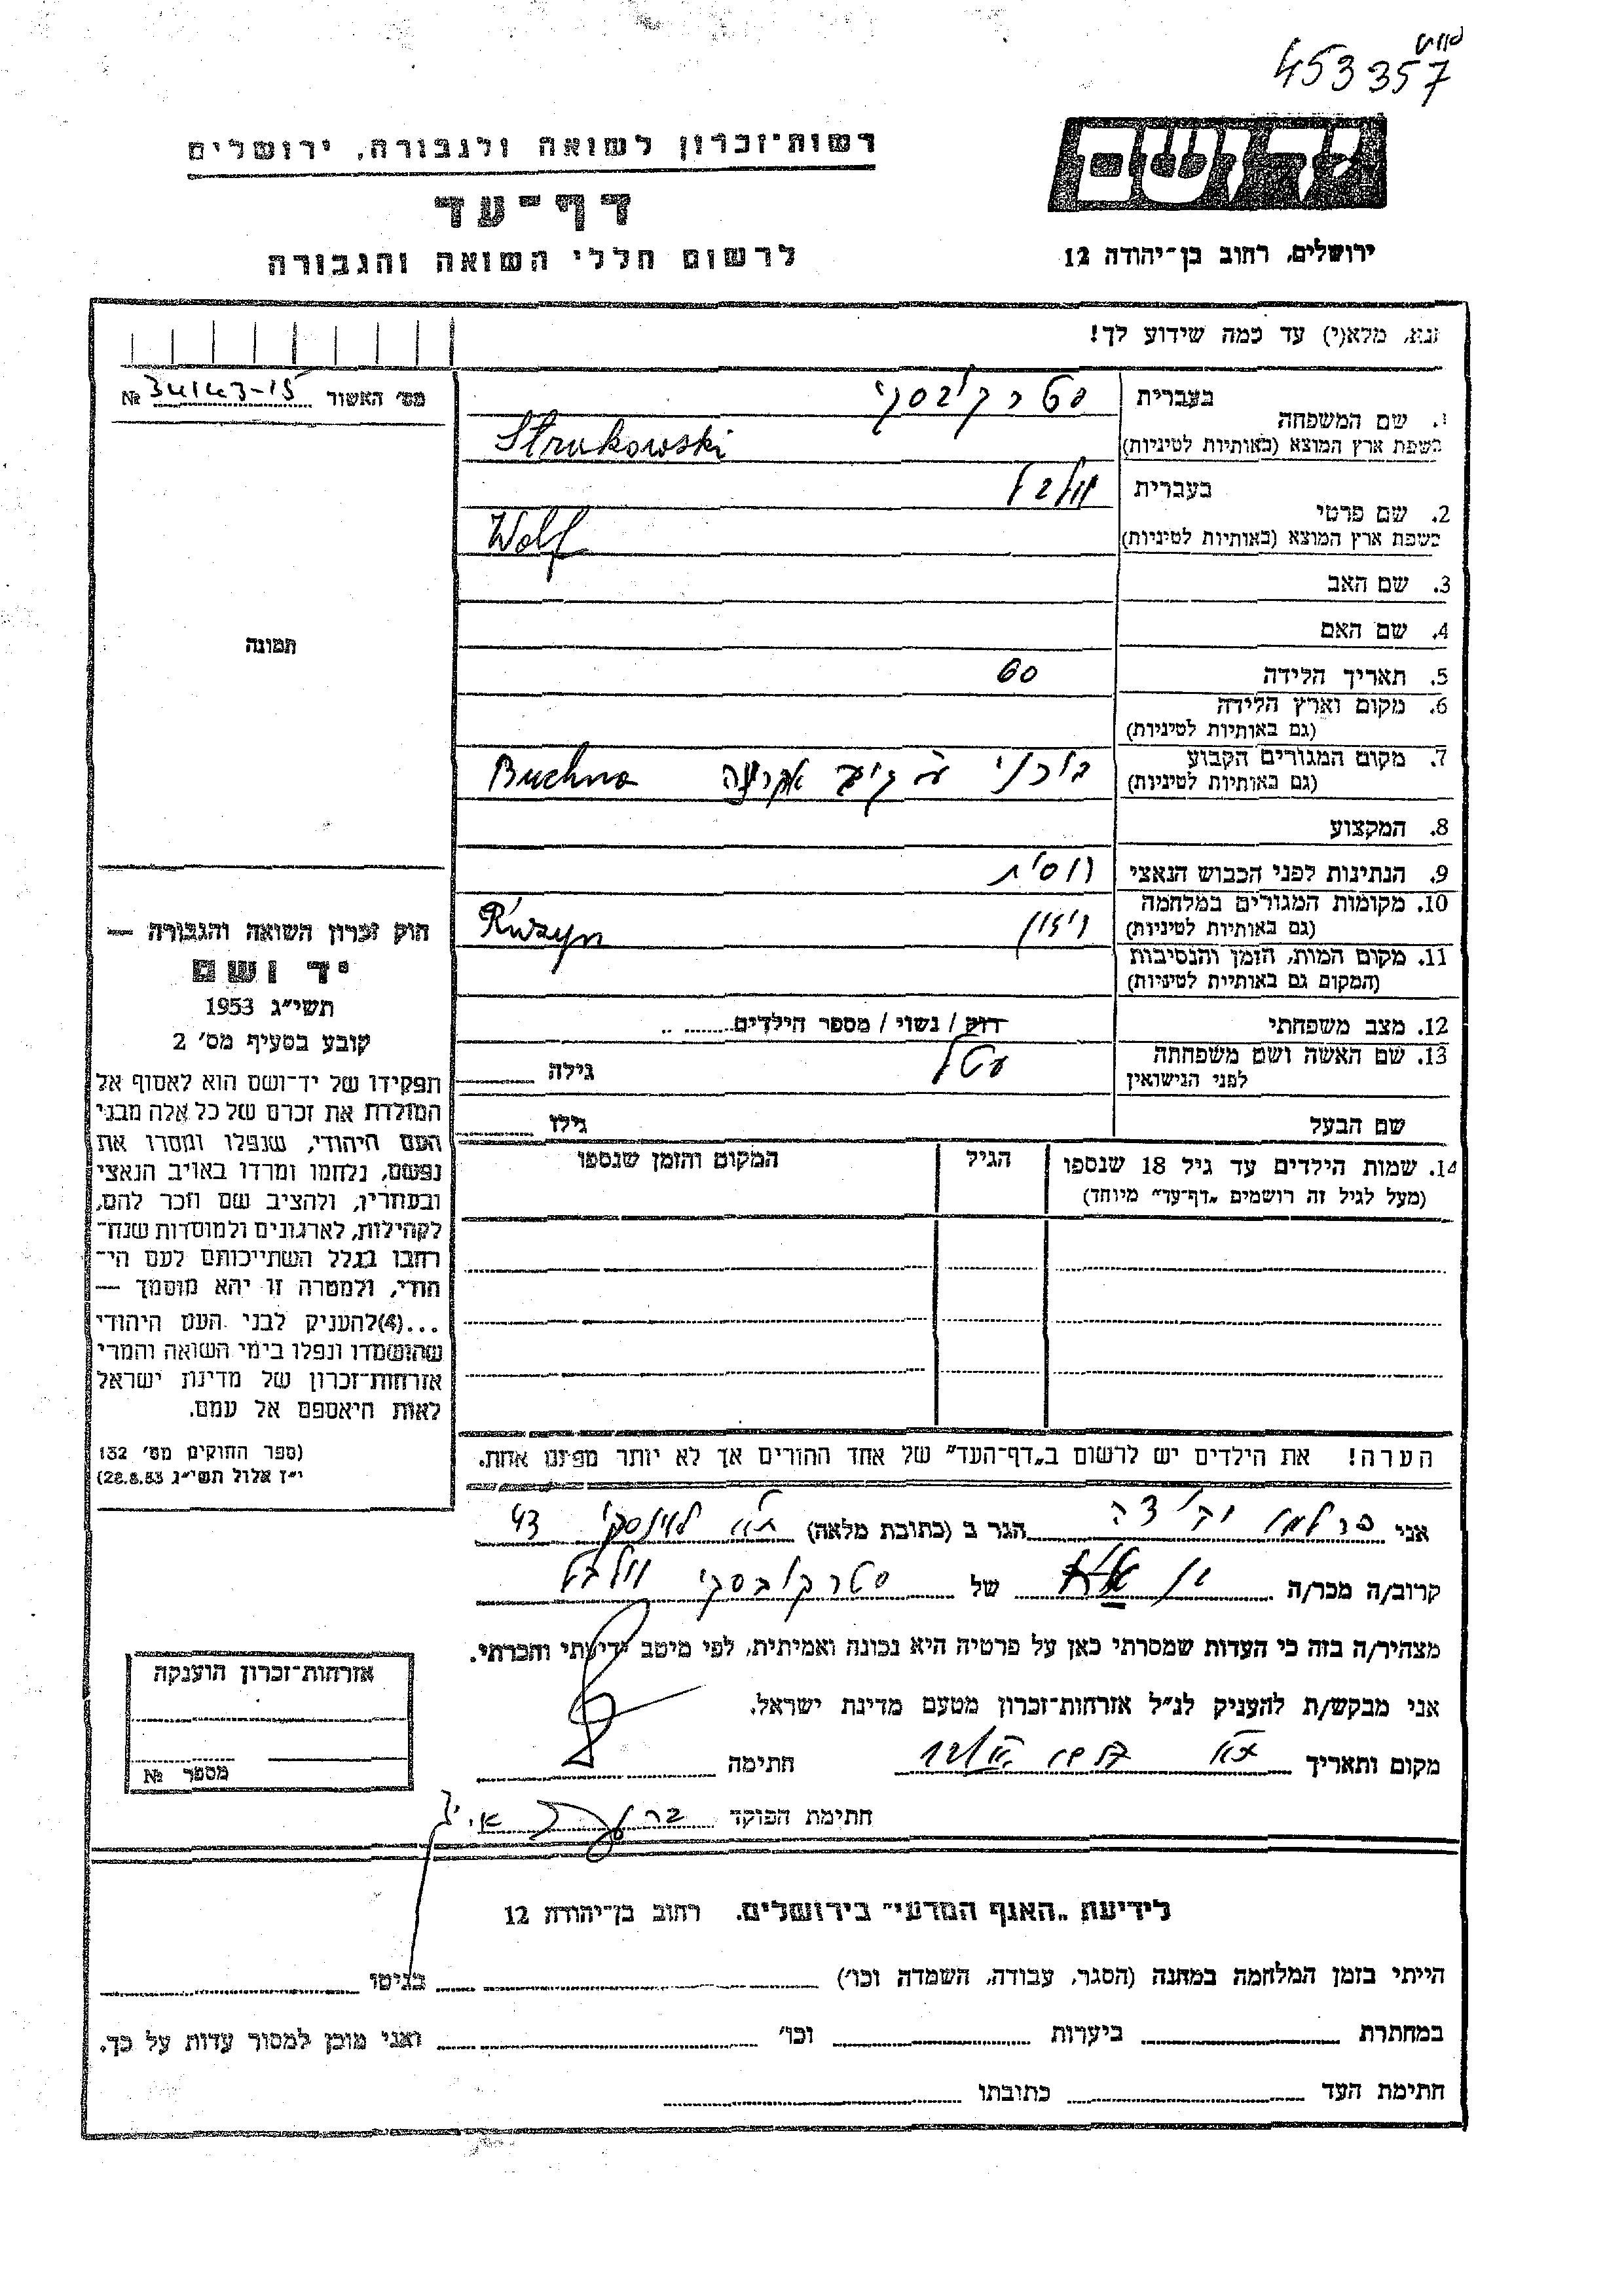 453357
רשות-זכרון לשואה ולגבורה, ירושלים
דף-עד
לרשום חללי השואה והגבורה
ירושלים, רחוב בן-יהודה 12
נא, מלא(י) עד כמה שידוע לך!
מס׳ האשור № 34143-15
1. שם המשפחה
בעברית סטרקובסקי
בשפת ארץ המוצא (באותיות לטיניות) Strukowski
2. שם פרטי
בעברית וולבל
בשפת ארץ המוצא (באותיות לטיניות) Wolf
3. שם האב
4. שם האם
5. תאריך הלידה 60
6. מקום וארץ הלידה
(גם באותיות לטיניות)
7. מקום המגורים הקבוע Buchna
(גם באותיות לטיניות)
8. המקצוע
9. הנתינות לפני הכבוש הנאצי רוסית
10. מקומות המגורים במלחמה
(גם באותיות לטיניות)
11. מקום המות, הזמן והנסיבות
(המקום גם באותיות לטיניות)
12. מצב משפחתי רווק / נשוי / מספר הילדים
13. שם האשה ושם משפחתה
לפני הנישואין גילה
שם הבעל גילו
14. שמות הילדים עד גיל 18 שנספו הגיל המקום והזמן שנספו
(מעל לגיל זה רושמים „דף-עד״ מיוחד)
תמונה
חוק זכרון השואה והגבורה —
יד ושם
תשי״ג 1953
קובע בסעיף מס׳ 2
תפקידו של יד-ושם הוא לאסוף אל
המולדת את זכרם של כל אלה מבני
העם היהודי, שנפלו ומסרו את
נפשם, נלחמו ומרדו באויב הנאצי
ובעוזריו, ולהציב שם וזכר להם,
לקהילות, לארגונים ולמוסדות שנח־
רחבו בגלל השתייכותם לעם הי־
הודי, ולמטרה זו יהא מוסמך —
...(4)להעניק לבני העם היהודי
שהושמדו ונפלו בימי השואה והמרי
אזרחות-זכרון של מדינת ישראל
לאות היאספם אל עמם.
(ספר החוקים מס׳ 132
י״ז אלול תשי״ג 28.8.53)
הערה! את הילדים יש לרשום ב„דף-העד״ של אחד ההורים אך לא יותר מפעם אחת.
אני הגר ב (כתובת מלאה) לוינסקי 43
קרוב/ה מכר/ה של סטרקובסקי
מצהיר/ה בזה כי העדות שמסרתי כאן על פרטיה היא נכונה ואמיתית, לפי מיטב ידיעתי והכרתי.
אני מבקש/ת להעניק לנ״ל אזרחות-זכרון מטעם מדינת ישראל.
מקום ותאריך חתימה
חתימת הפוקד
אזרחות-זכרון הוענקה
מספר №
לידיעת „האגף המדעי״ בירושלים. רחוב בן-יהודה 12
הייתי בזמן המלחמה במחנה (הסגר, עבודה, השמדה וכו׳) בגיטו
במחתרת ביערות וכו׳ ואני מוכן למסור עדות על כך.
חתימת העד כתובתו